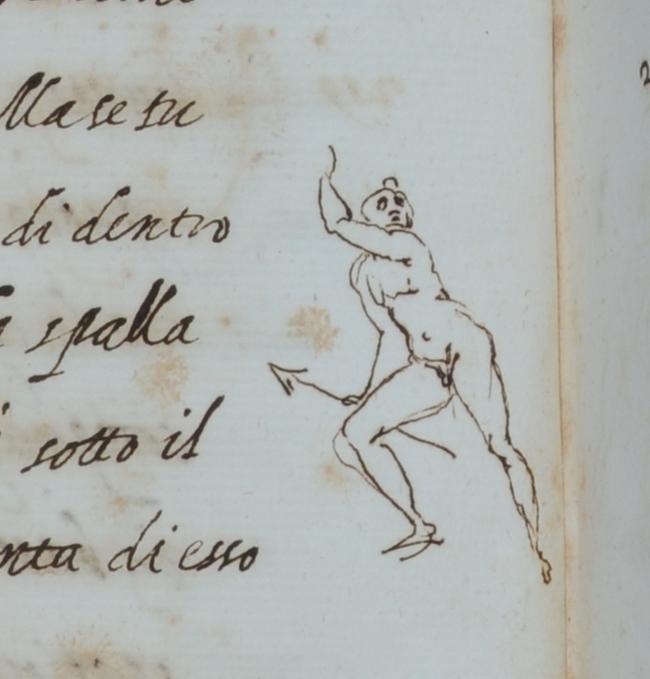 Ma se tu
di dentro
spalla
sotto il
di esso